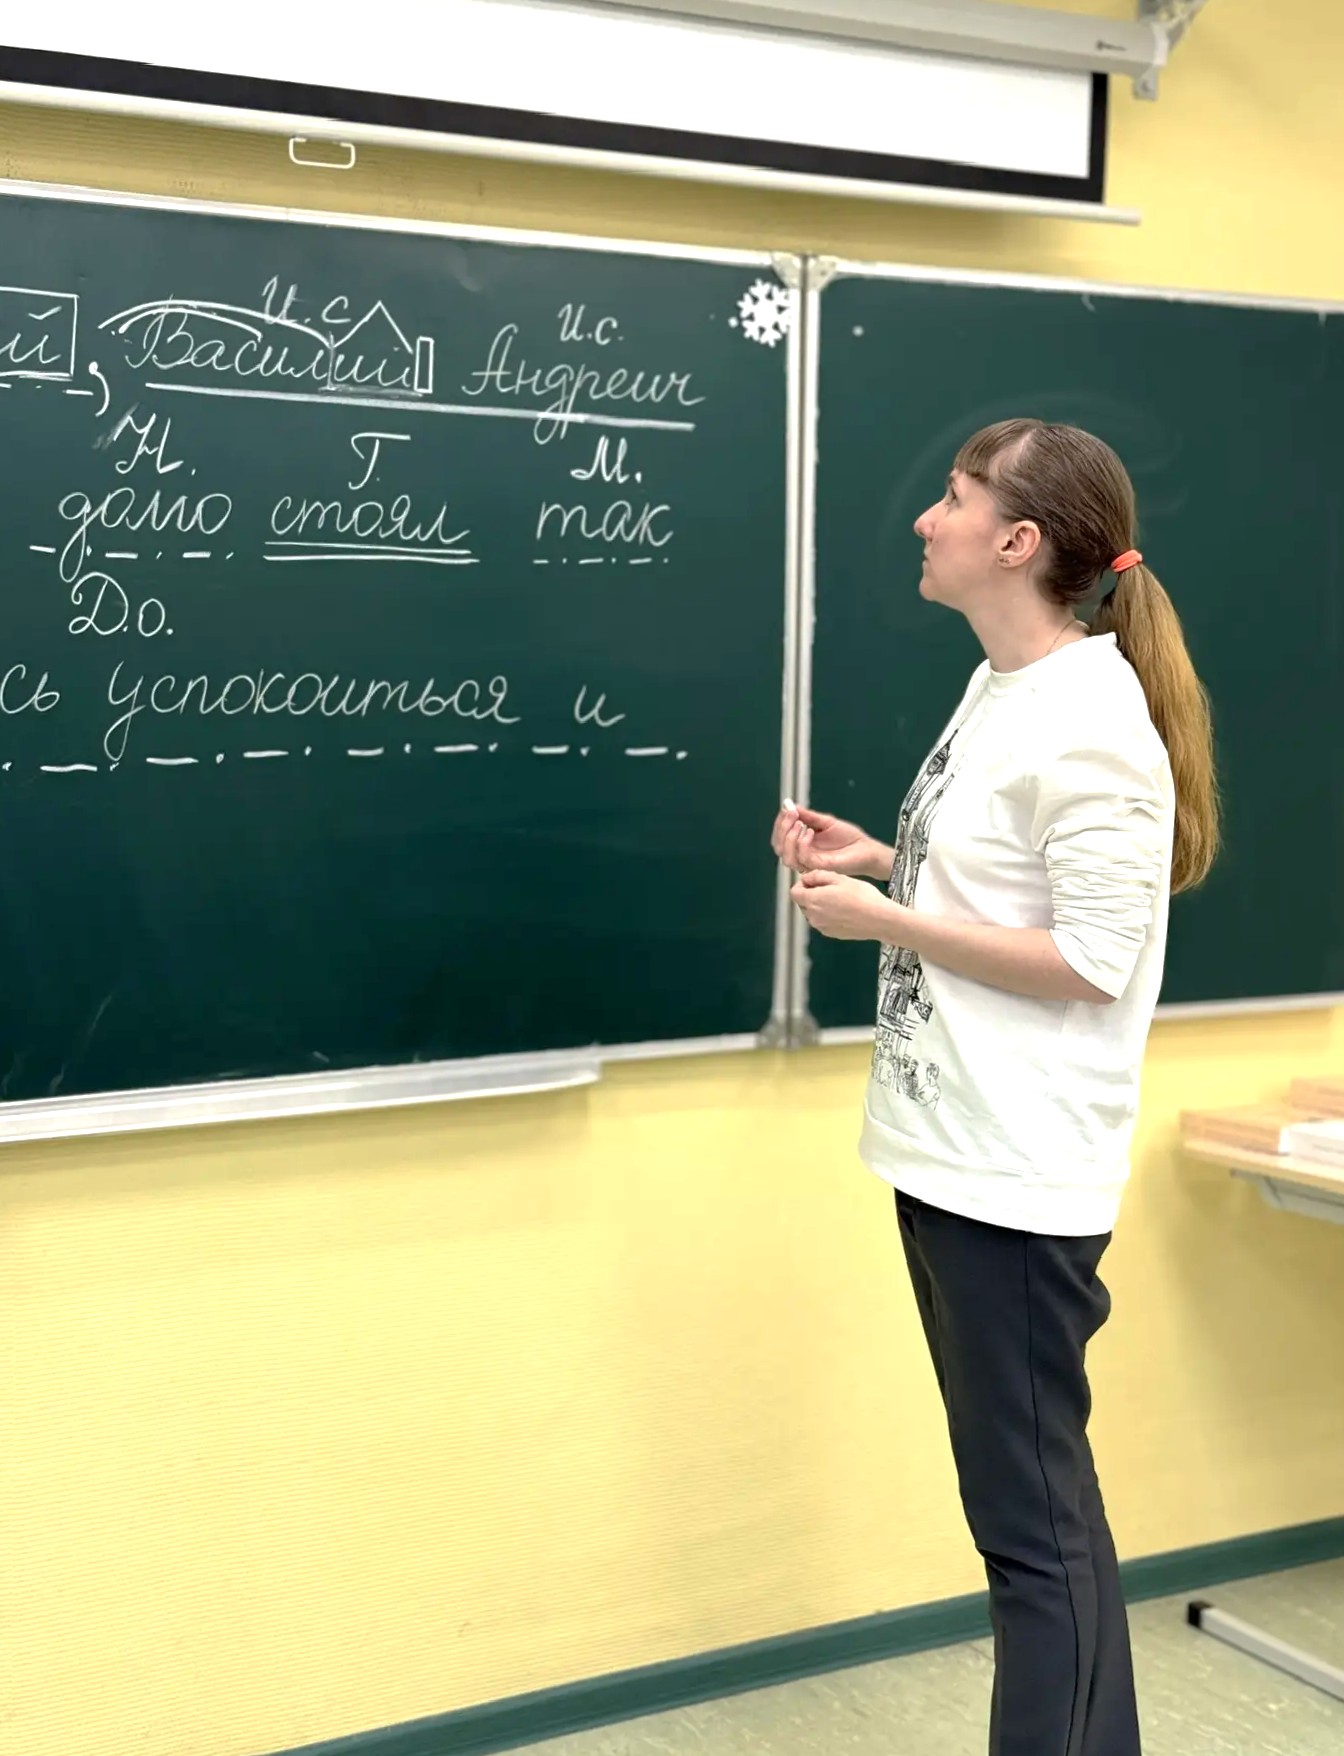 и.с. и.с.
ий, Василий Андреич
Н. Г. М.
долго стоял так
Д.о.
сь успокоиться и